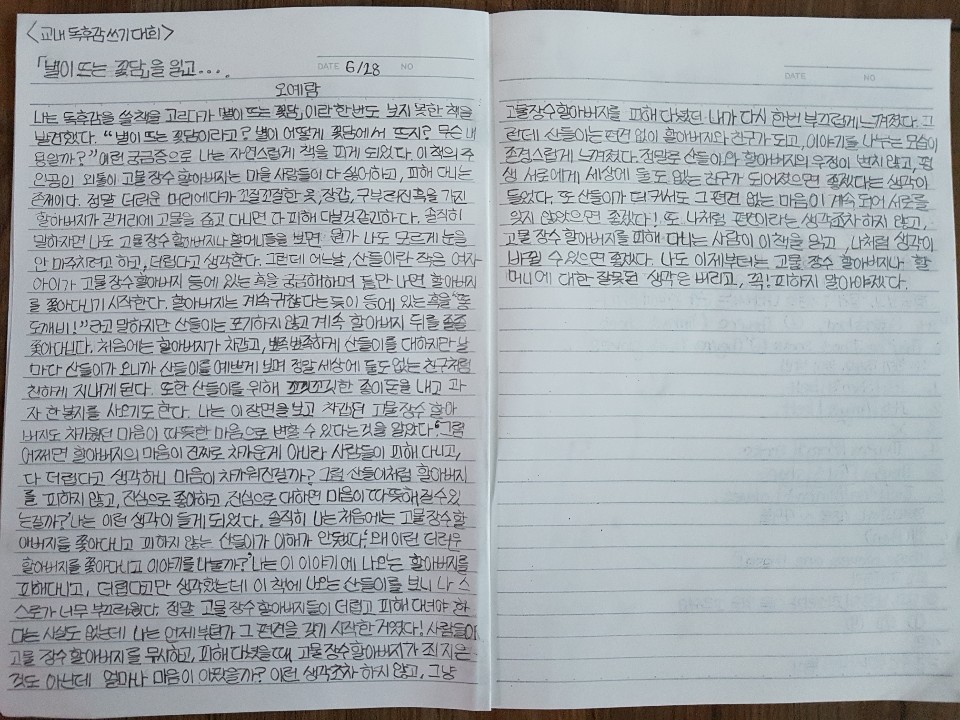 <교내 독후감 쓰기 대회>
「별이 뜨는 꽃담」을 읽고....
DATE 6/28 NO
오예람
나는 독후감을 쓸 책을 고르다가 '별이 뜨는 꽃담'이란 한번도 보지 못한 책을
발견했다. "별이 뜨는 꽃담이라고? 별이 어떻게 꽃담에서 뜨지? 무슨 내
용일까?" 이런 궁금증으로 나는 자연스럽게 책을 펴게 되었다. 이 책의 주
인공이 외톨이 고물장수 할아버지는 마을 사람들이 다 싫어하고, 피해 다니는
존재이다. 정말 더러운 머리에다가 꼬질꼬질한 옷, 장갑, 구부러진 혹을 가진
할아버지가 길거리에 고물을 줍고 다니면 다 피해 다닐 것 같긴하다. 솔직히
말하자면 나도 고물장수 할아버지나 할머니들을 보면 뭔가 나도 모르게 눈을
안 마주치려고 하고, 더럽다고 생각한다. 그런데 어느날, 산들이란 작은 여자
아이가 고물장수할아버지 등에 있는 혹을 궁금해하며 틈만 나면 할아버지
를 쫓아다니기 시작한다. 할아버지는 계속 귀찮다는 듯이 등에 있는 혹을 "똥
도깨비!"라고 말하지만 산들이는 포기하지 않고 계속 할아버지 뒤를 졸졸
쫓아다닌다. 처음에는 할아버지가 차갑고, 뾰족뾰족하게 산들이를 대하지만 날
마다 산들이가 오니까 산들이를 예쁘게 보며 정말 세상에 둘도 없는 친구처럼
친하게 지내게 된다. 또한 산들이를 위해 꼬깃꼬깃한 종이돈을 내고 과
자 한봉지를 사오기도 한다. 나는 이 장면을 보고 차갑던 고물장수 할아
버지도 차가웠던 마음이 따뜻한 마음으로 변할 수 있다는 것을 알았다. '그럼
어쩌면 할아버지의 마음이 진짜로 차가운게 아니라 사람들이 피해 다니고,
다 더럽다고 생각하니 마음이 차가워진걸까? 그럼 산들이처럼 할아버지
를 피하지 않고, 진심으로 좋아하고, 진심으로 대하면 마음이 따뜻해질수있
는걸까?' 나는 이런 생각이 들게 되었다. 솔직히 나는 처음에는 고물장수할
아버지를 쫓아다니고 피하지 않는 산들이가 이해가 안됐다. '왜 이런 더러운
할아버지를 쫓아다니고 이야기를 나눌까?' 나는 이 이야기에 나오는 할아버지를
피해다니고, 더럽다고만 생각했는데 이 책에 나오는 산들이를 보니 나 스
스로가 너무 부끄러웠다. 정말 고물 장수 할아버지들이 더럽고 피해 다녀야 한
다는 사실도 없는데 나는 언제부턴가 그 편견을 갖기 시작한 거였다! 사람들이
고물 장수 할아버지를 무시하고, 피해 다녔을 때, 고물장수 할아버지가 죄 지은
것도 아닌데 얼마나 마음이 아팠을까? 이런 생각조차 하지 않고, 그냥
DATE NO
고물장수할아버지를 피해 다녔던 내가 다시 한번 부끄럽게 느껴졌다. 그
런데 산들이는 편견 없이 할아버지와 친구가 되고, 이야기를 나누는 모습이
존경스럽게 느껴졌다. 정말로 산들이와 할아버지의 우정이 변치 않고, 평
생 서로에게 세상에 둘도 없는 친구가 되어졌으면 좋겠다는 생각이
들었다. 또 산들이가 더 커서도 그 편견 없는 마음이 계속 되어 서로를
잊지 않았으면 좋겠다! 또 나처럼 편견이라는 생각조차 하지 않고,
고물 장수 할아버지를 피해 다니는 사람이 이 책을 읽고, 나처럼 생각이
바뀔 수 있으면 좋겠다. 나도 이제부터는 고물 장수 할아버지나 할
머니에 대한 잘못된 생각은 버리고, 꼭! 피하지 말아야겠다.